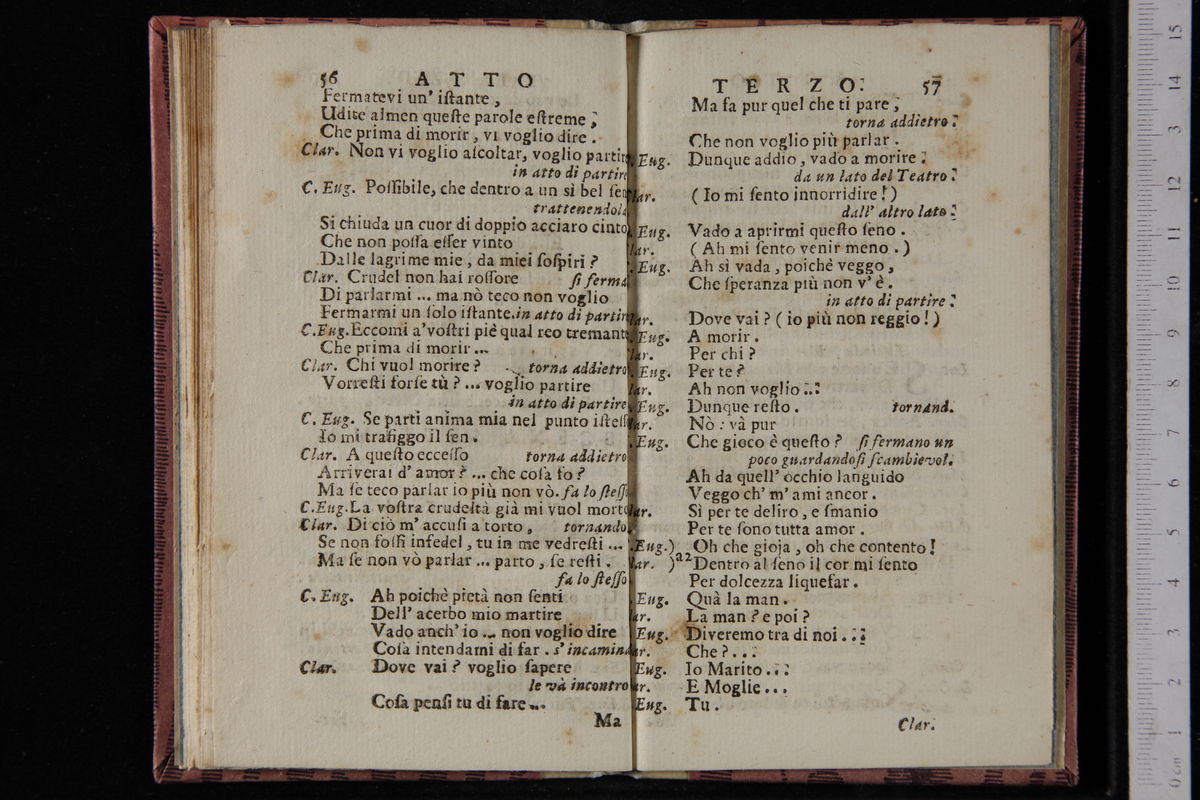 56 ATTO
Fermatevi un' iſtante,
Udite almen queſte parole eſtreme;
Che prima di morir, vi voglio dire.
Clar. Non vi voglio aſcoltar, voglio partir
in atto di partire
C. Eug. Poſſibile, che dentro a un sì bel ſen
trattenendola
Si chiuda un cuor di doppio acciaro cinto
Che non poſſa eſſer vinto
Dalle lagrime mie, da miei ſoſpiri?
Clar. Crudel non hai roſſore ſi ferma
Di parlarmi ... ma nò teco non voglio
Fermarmi un ſolo iſtante. in atto di partir
C. Eug. Eccomi a'voſtri piè qual reo tremante
Che prima di morir ...
Clar. Chi vuol morire? torna addietro
Vorreſti forſe tù? ... voglio partire
in atto di partire
C. Eug. Se parti anima mia nel punto iſteſſo
Io mi trafiggo il ſen.
Clar. A queſto ecceſſo torna addietro
Arriverai d' amor? ... che coſa fo?
Ma ſe teco parlar io più non vò. fa lo ſteſſo
C. Eug. La voſtra crudeltà già mi vuol morto
Clar. Di ciò m' accuſi a torto, tornando
Se non foſſi infedel, tu in me vedreſti ...
Ma ſe non vò parlar ... parto, ſe reſti.
fa lo ſteſſo
C. Eug. Ah poichè pietà non ſenti
Dell' acerbo mio martire
Vado anch' io ... non voglio dire
Coſa intendami di far. s' incamina
Clar. Dove vai? voglio ſapere
le và incontro
Coſa penſi tu di fare ...
Ma
TERZO. 57
Ma fa pur quel che ti pare;
torna addietro.
Che non voglio più parlar.
Eug. Dunque addio, vado a morire.
da un lato del Teatro.
lar. (Io mi ſento innorridire!)
dall' altro lato.
Eug. Vado a aprirmi queſto ſeno.
lar. (Ah mi ſento venir meno.)
Eug. Ah sì vada, poichè veggo,
Che ſperanza più non v' è.
in atto di partire.
lar. Dove vai? (io più non reggio!)
Eug. A morir.
lar. Per chi?
Eug. Per te?
lar. Ah non voglio...
Eug. Dunque reſto. tornand.
lar. Nò: và pur
Eug. Che gioco è queſto? ſi fermano un
poco guardandoſi ſcambievol.
Ah da quell' occhio languido
Veggo ch' m' ami ancor.
lar. Sì per te deliro, e ſmanio
Per te ſono tutta amor.
Eug.) Oh che gioja, oh che contento!
lar. )a2 Dentro al ſeno il cor mi ſento
Per dolcezza liquefar.
Eug. Quà la man.
lar. La man? e poi?
Eug. Diveremo tra di noi...
ar. Che?...
Eug. Io Marito...
ar. E Moglie...
Eug. Tu.
Clar.